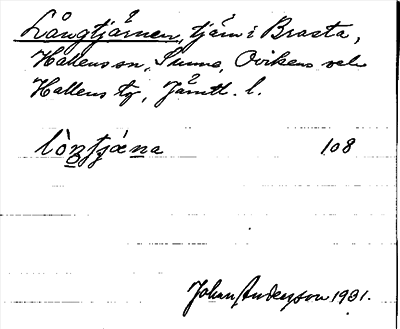 Långtjärnen, tjärn i Brasta,
Hallens sn, Sunne, Ovikens
Hallens tg, Jämtl. l.
lòŋtjæ̀na 108
Johan Anderson 1931.